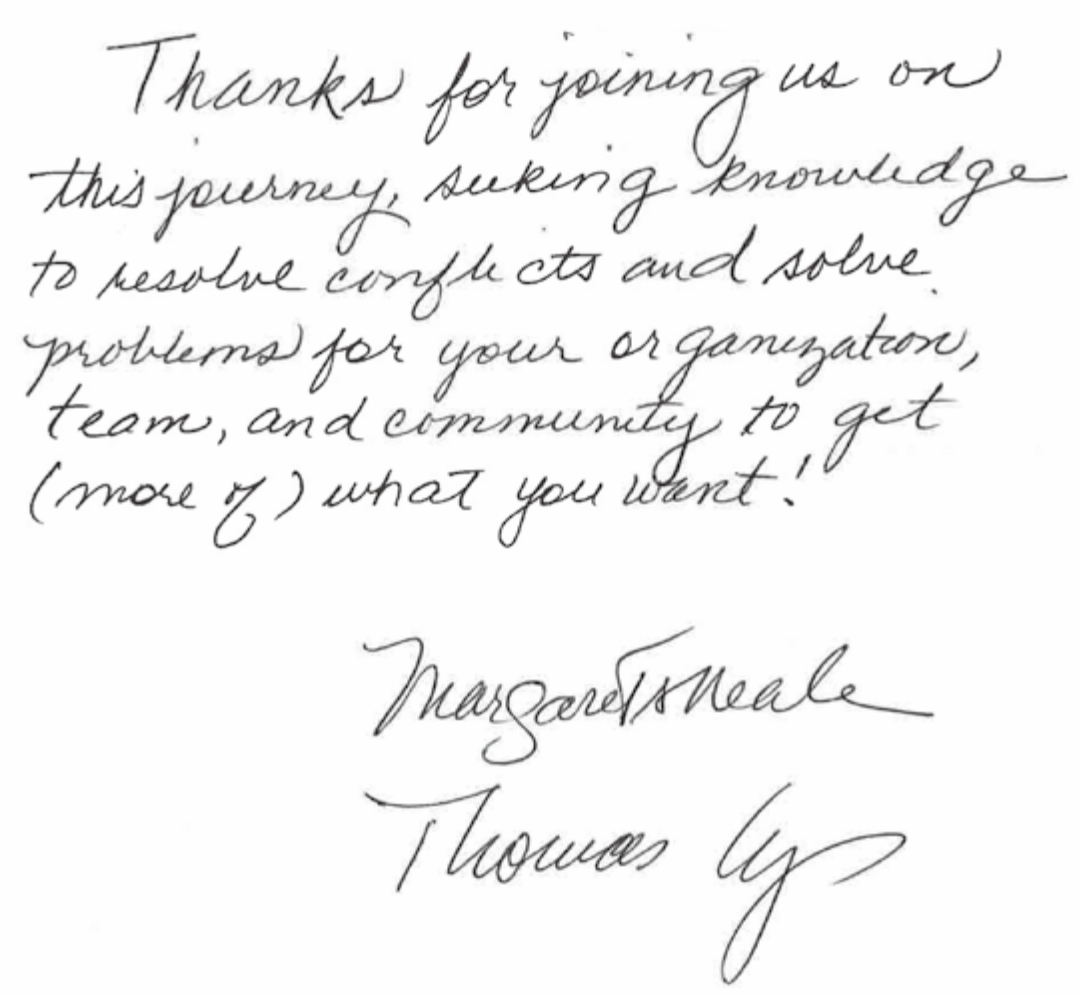 Thanks for joining us on
this journey, seeking knowledge
to resolve conflicts and solve
problems for your organization,
team, and community to get
(more of) what you want!
Margaret A Neale
Thomas Lys